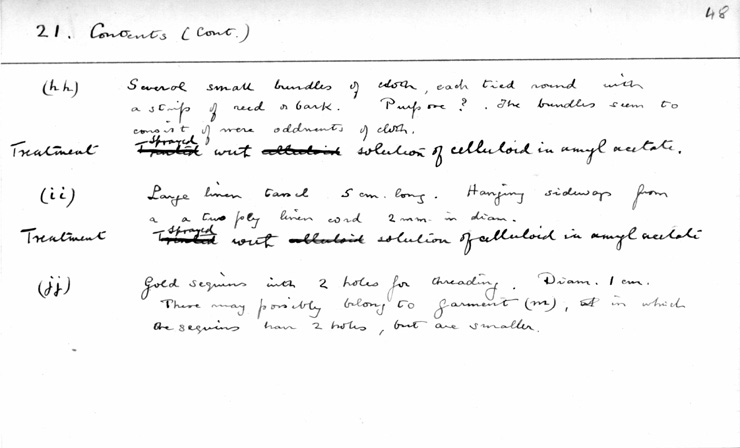 48
21. Contents (Cont.)
(hh) Several small bundles of cloth, each tied round with
a strip of reed or bark. Purpose ?. The bundles seem to
consist of mere oddments of cloth.
Treatment Treated Sprayed with celluloid solution of celluloid in amyl acetate.
(ii) Large linen tassel 5 cm. long. Hanging sideways from
a a two ply linen cord 2 mm. in diam.
Treatment Treated Sprayed with celluloid solution of celluloid in amyl acetate
(jj) Gold sequins with 2 holes for threading. Diam. 1 cm.
These may possibly belong to garment (m), in which
the sequins have 2 holes, but are smaller.